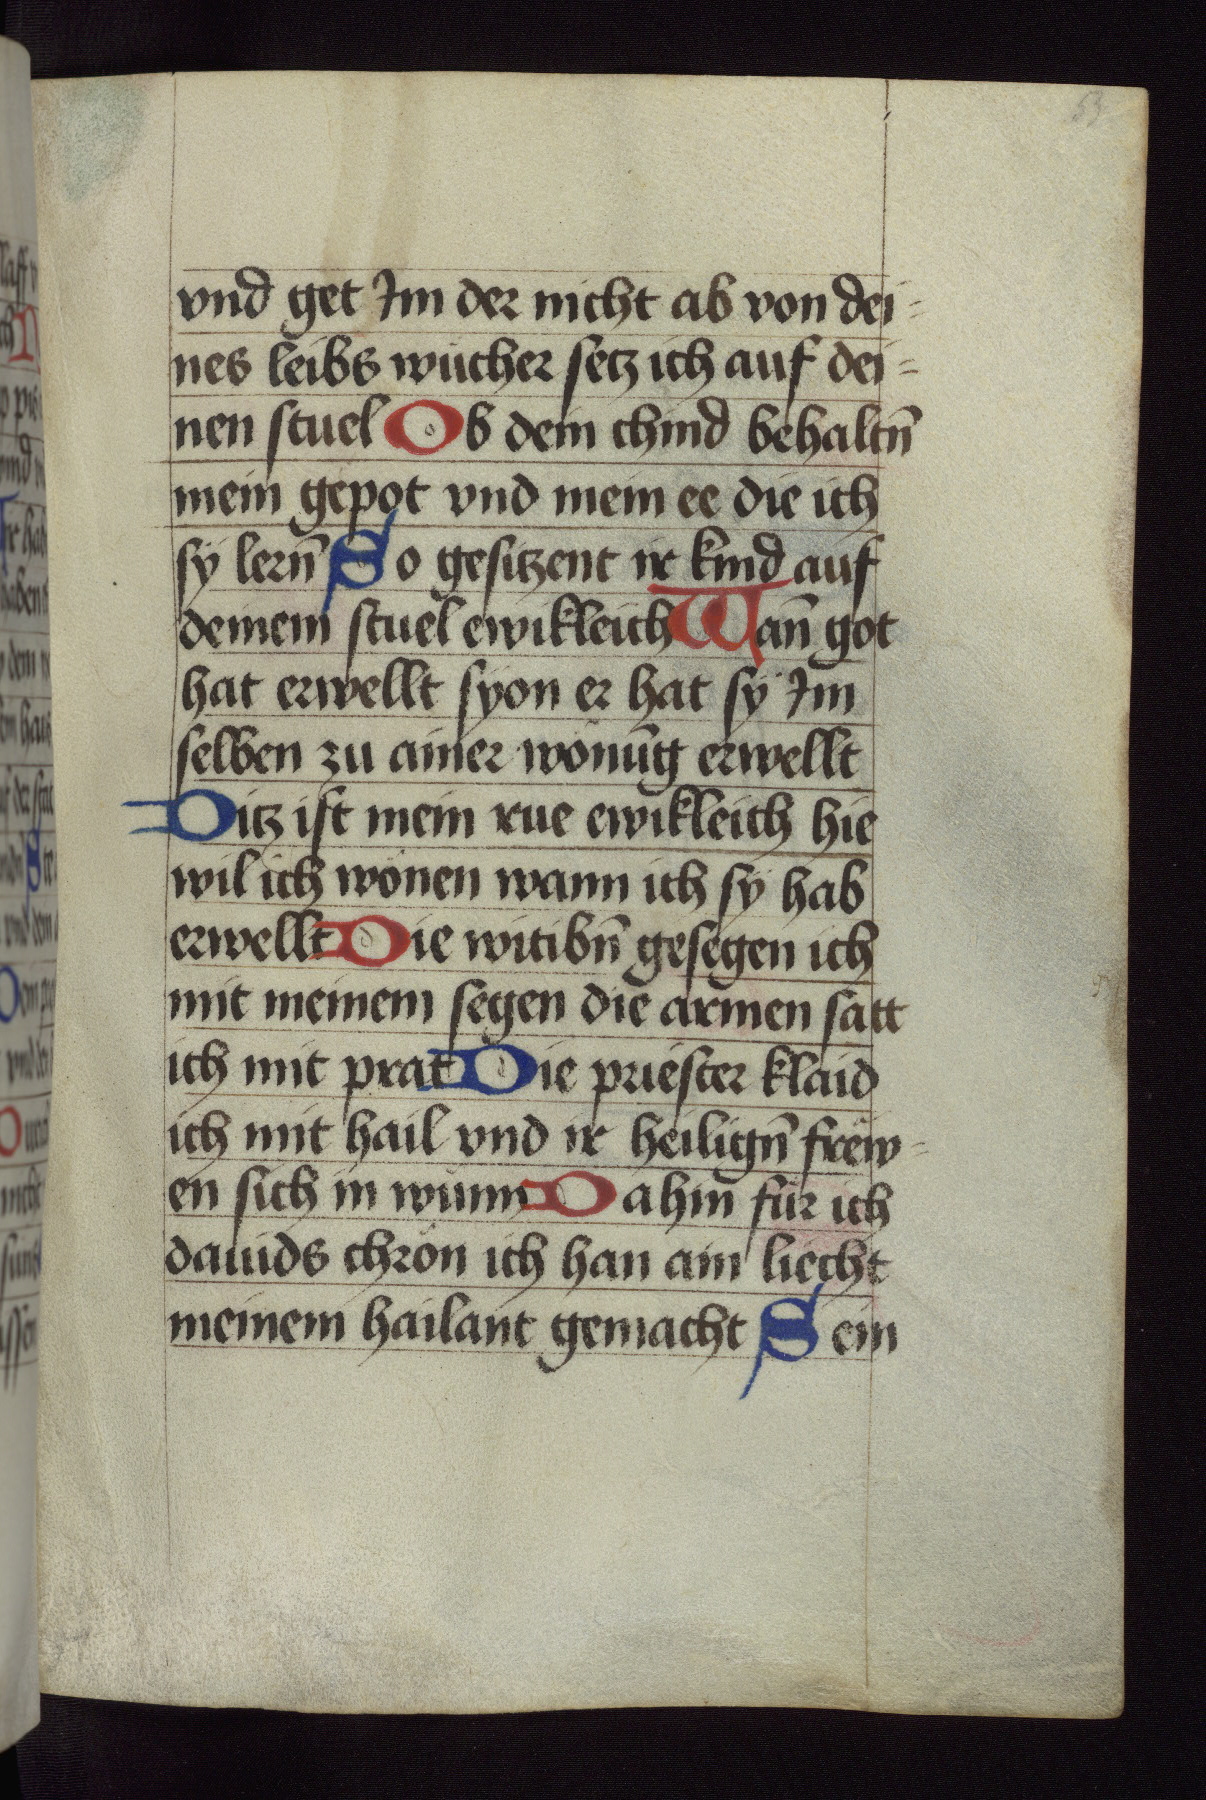 53
vnd get Im der nicht ab von dei-
nes leibs wücher setz ich auf dei-
nen stuel Ob dein chind behaltn̄
mein gepot vnd mein ee die ich
sÿ lern̄ So gesitzent ir kind auf
deinem stuel ewikleich Wan̄ got
hat erwellt syon er hat sÿ Im
selben zu ainer wonūg erwellt
Ditz ist mein rue ewikleich hie
wil ich wonen wann ich sÿ hab
erwellt Die witibn̄ gesegen ich
mit meinem segen die armen satt
ich mit prat Die priester klaid
ich mit hail vnd ir heilign̄ frew-
en sich in wünn Da hin für ich
dauids chron ich han ain liecht
meinem hailant gemacht Sein